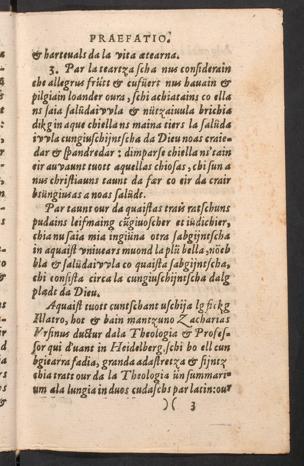 PRAEFATIO.
& harteuals da la vita ætearna.
3. Par la teartza scha nus considerain
che allegrus früt & cusüert nus hauain &
pilgiain loander oura, schi achiatains co ella
ns saia salüdaivvla & nützaiuula brichia
dikg in aque chiella ns maina tiers la salüda
ivvla cungiuschijntscha da Dieu noas craie-
dar & spandredar : dimparse chiella ni'tain
eir auvaunt tuott aquellas chiosas, chi sun a
nus christiauns taunt da fær co eir da crair
bsüngiusas a noas salüdt.
Par taunt our da quaistas trais ratschuns
pudains leifmaing cügiuoscher et iüdichier,
chia nu saia mia ingiüna otra sabgijntscha
in aquaist vniuears muond la plü bella, nöeb
bla & salüdaivvla co quaista sabgijntscha,
chi consista circa la cungiuschijntscha dalg
plædt da Dieu.
Aquaist tuott cuntschant uschija lg
Illatro, hot & bain mantzuno Zacharias
Vrsinus ductur dala Theologia & Profes-
sor qui d'uant in Heidelberg, schi ho ell cun
bgiearra fadia, granda adastretza & sijntz
chia tratt our da la Theologia ün summari-
um ala lungia in duos cudaschs par latin: our
)( 3